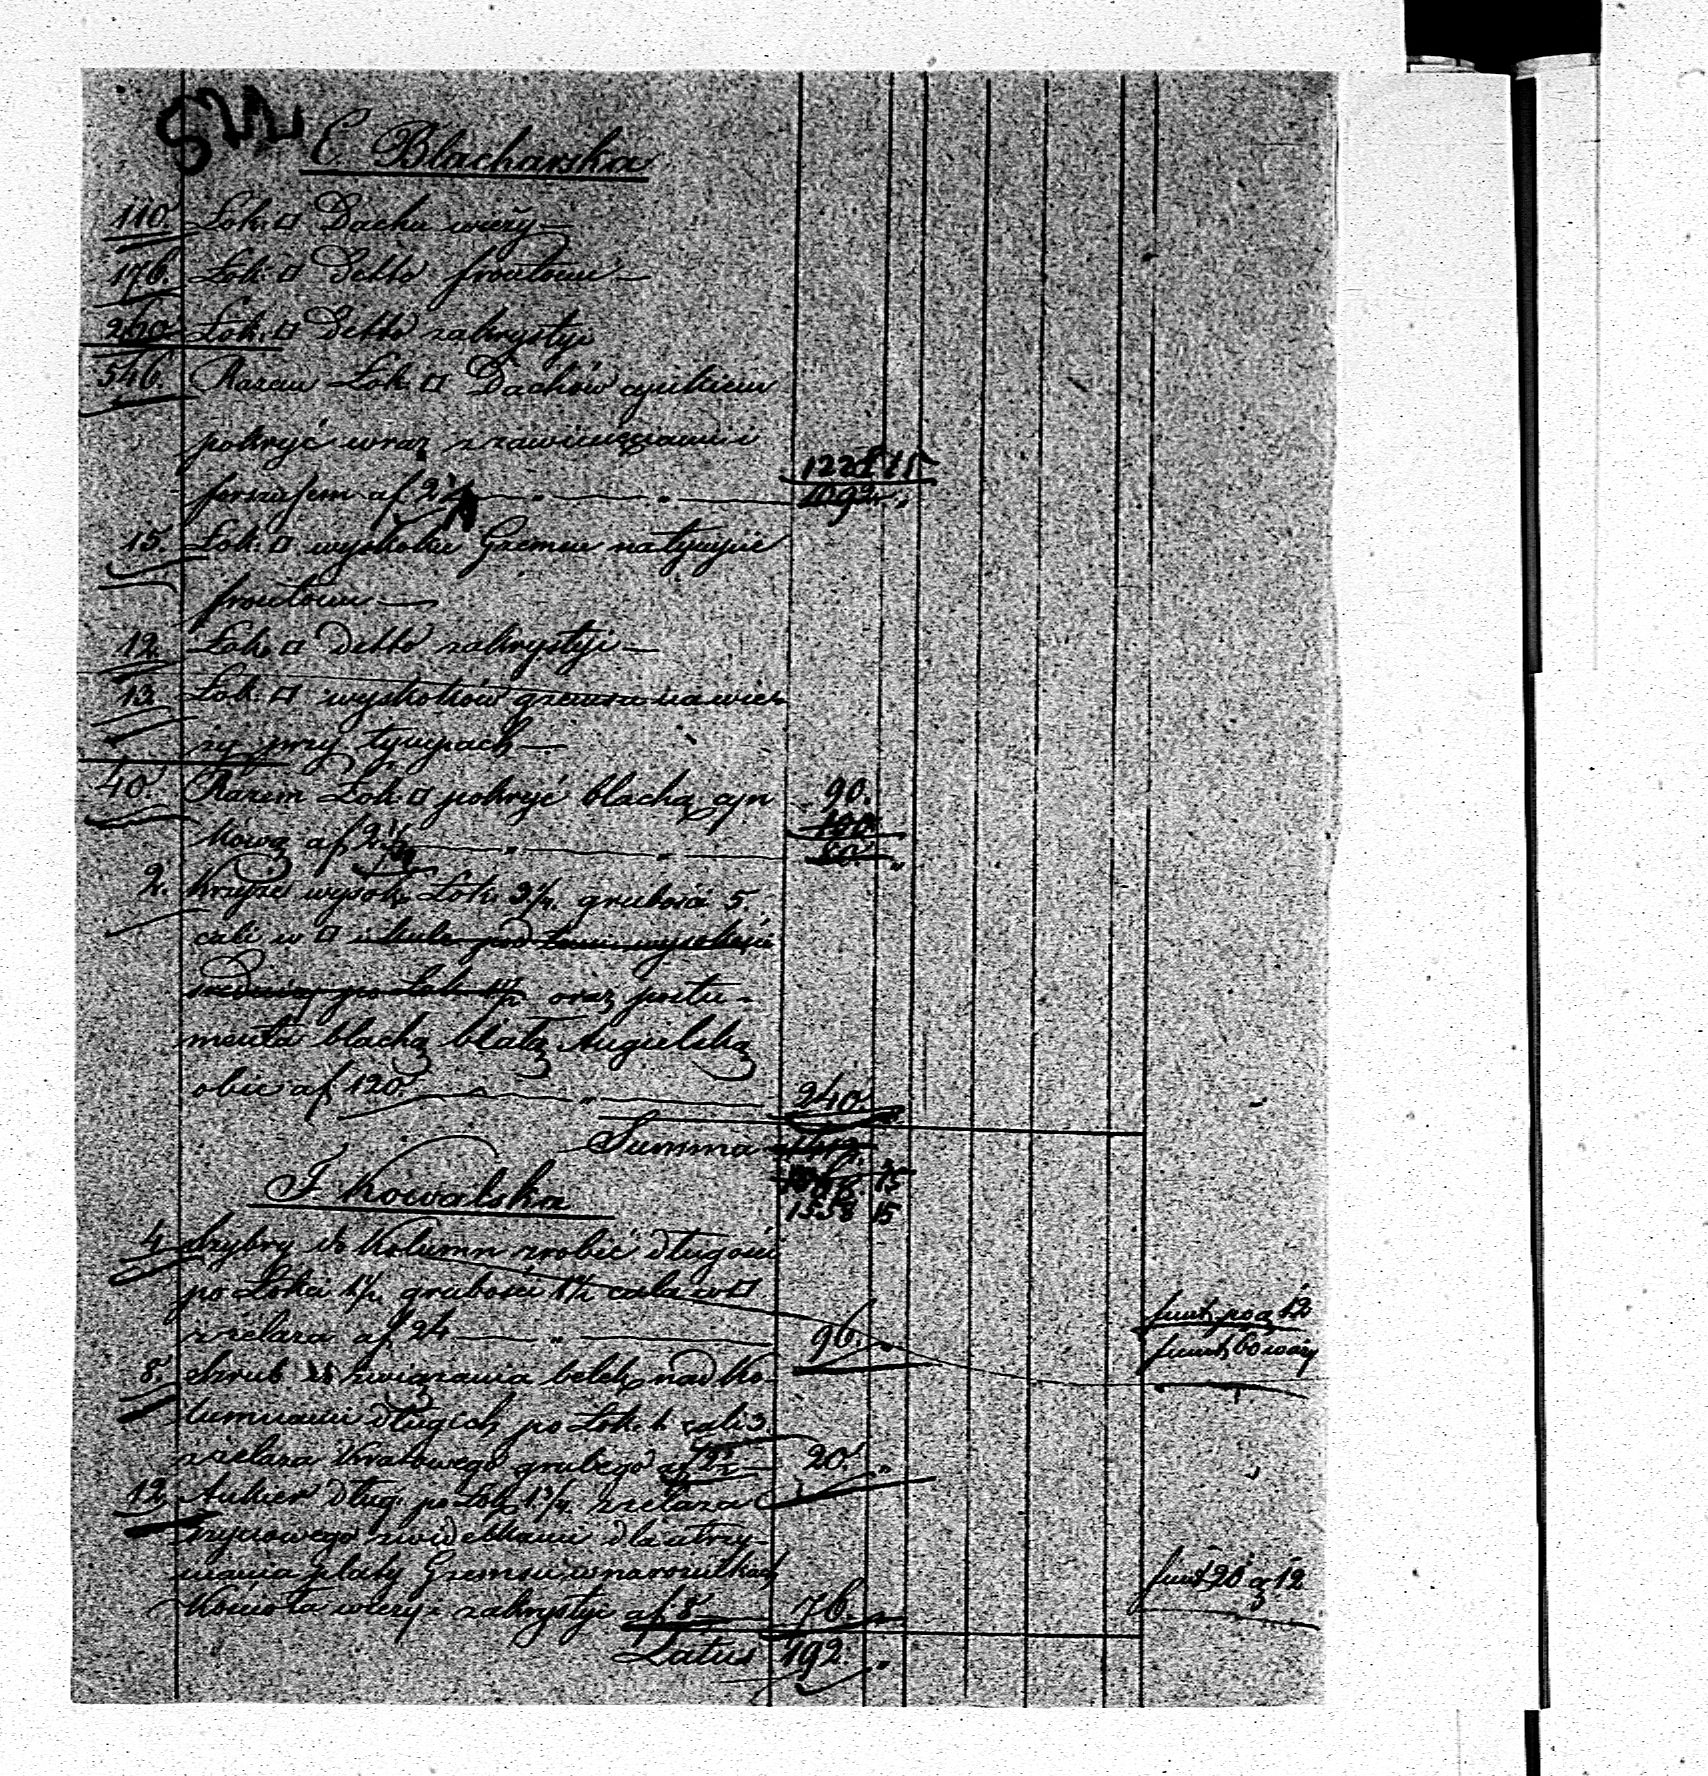 E Blacharska
110. Łok. □ Dachu wieży —
176. Łok. □ Detto frontonu —
260 Łok. □ Detto zakrystyi
546. Razem Łok. □ Dachów cynkiem
pokryć wraz z zawinięciami i
1228 15
af 2 1092 "
15. Łok. □ wyskoku Gzemsu na tympie
frontonu —
12. Łok. □ Detto zakrystyi —
13. Łok. □ wyskoków gzemsu na wie-
ży przy tympach —
40. Razem Łok. □ pokryć blachą cyn 90.
100
kową af 2 1/4 " " 80. "
2. Krzyże wysok. Łok. 3 1/4. grubości 5.
cali w □ i kule pod niemi wysokości
średnicy po Łok. 1 1/2 oraz postu-
menta blachą białą Angielską
obić af 120. " 240.
Summa 1412
15
1558 15
F Kowalska
4 Szybry do Kolumn zrobić długości
po Łokci 1 1/2 grubości 1 1/2 cala w □
z żelaza af 24 " 96. "
funt. po g 12
funt. 60 waży
8. Szrub do związania belek nad Ko-
lumnami długich po Łok. 1 cali 3.
z żelaza Kratowego grubego af 2 1/2 20. "
12. Ankier dług. po Łok. 1 3/4. z żelaza
rycowego z widełkami dla utrzy-
mania płaty Gzemsu w narożnikach
Kościoła wieży i zakrystyi af 8 76. "
funt 20 g 12
Latus 192. "